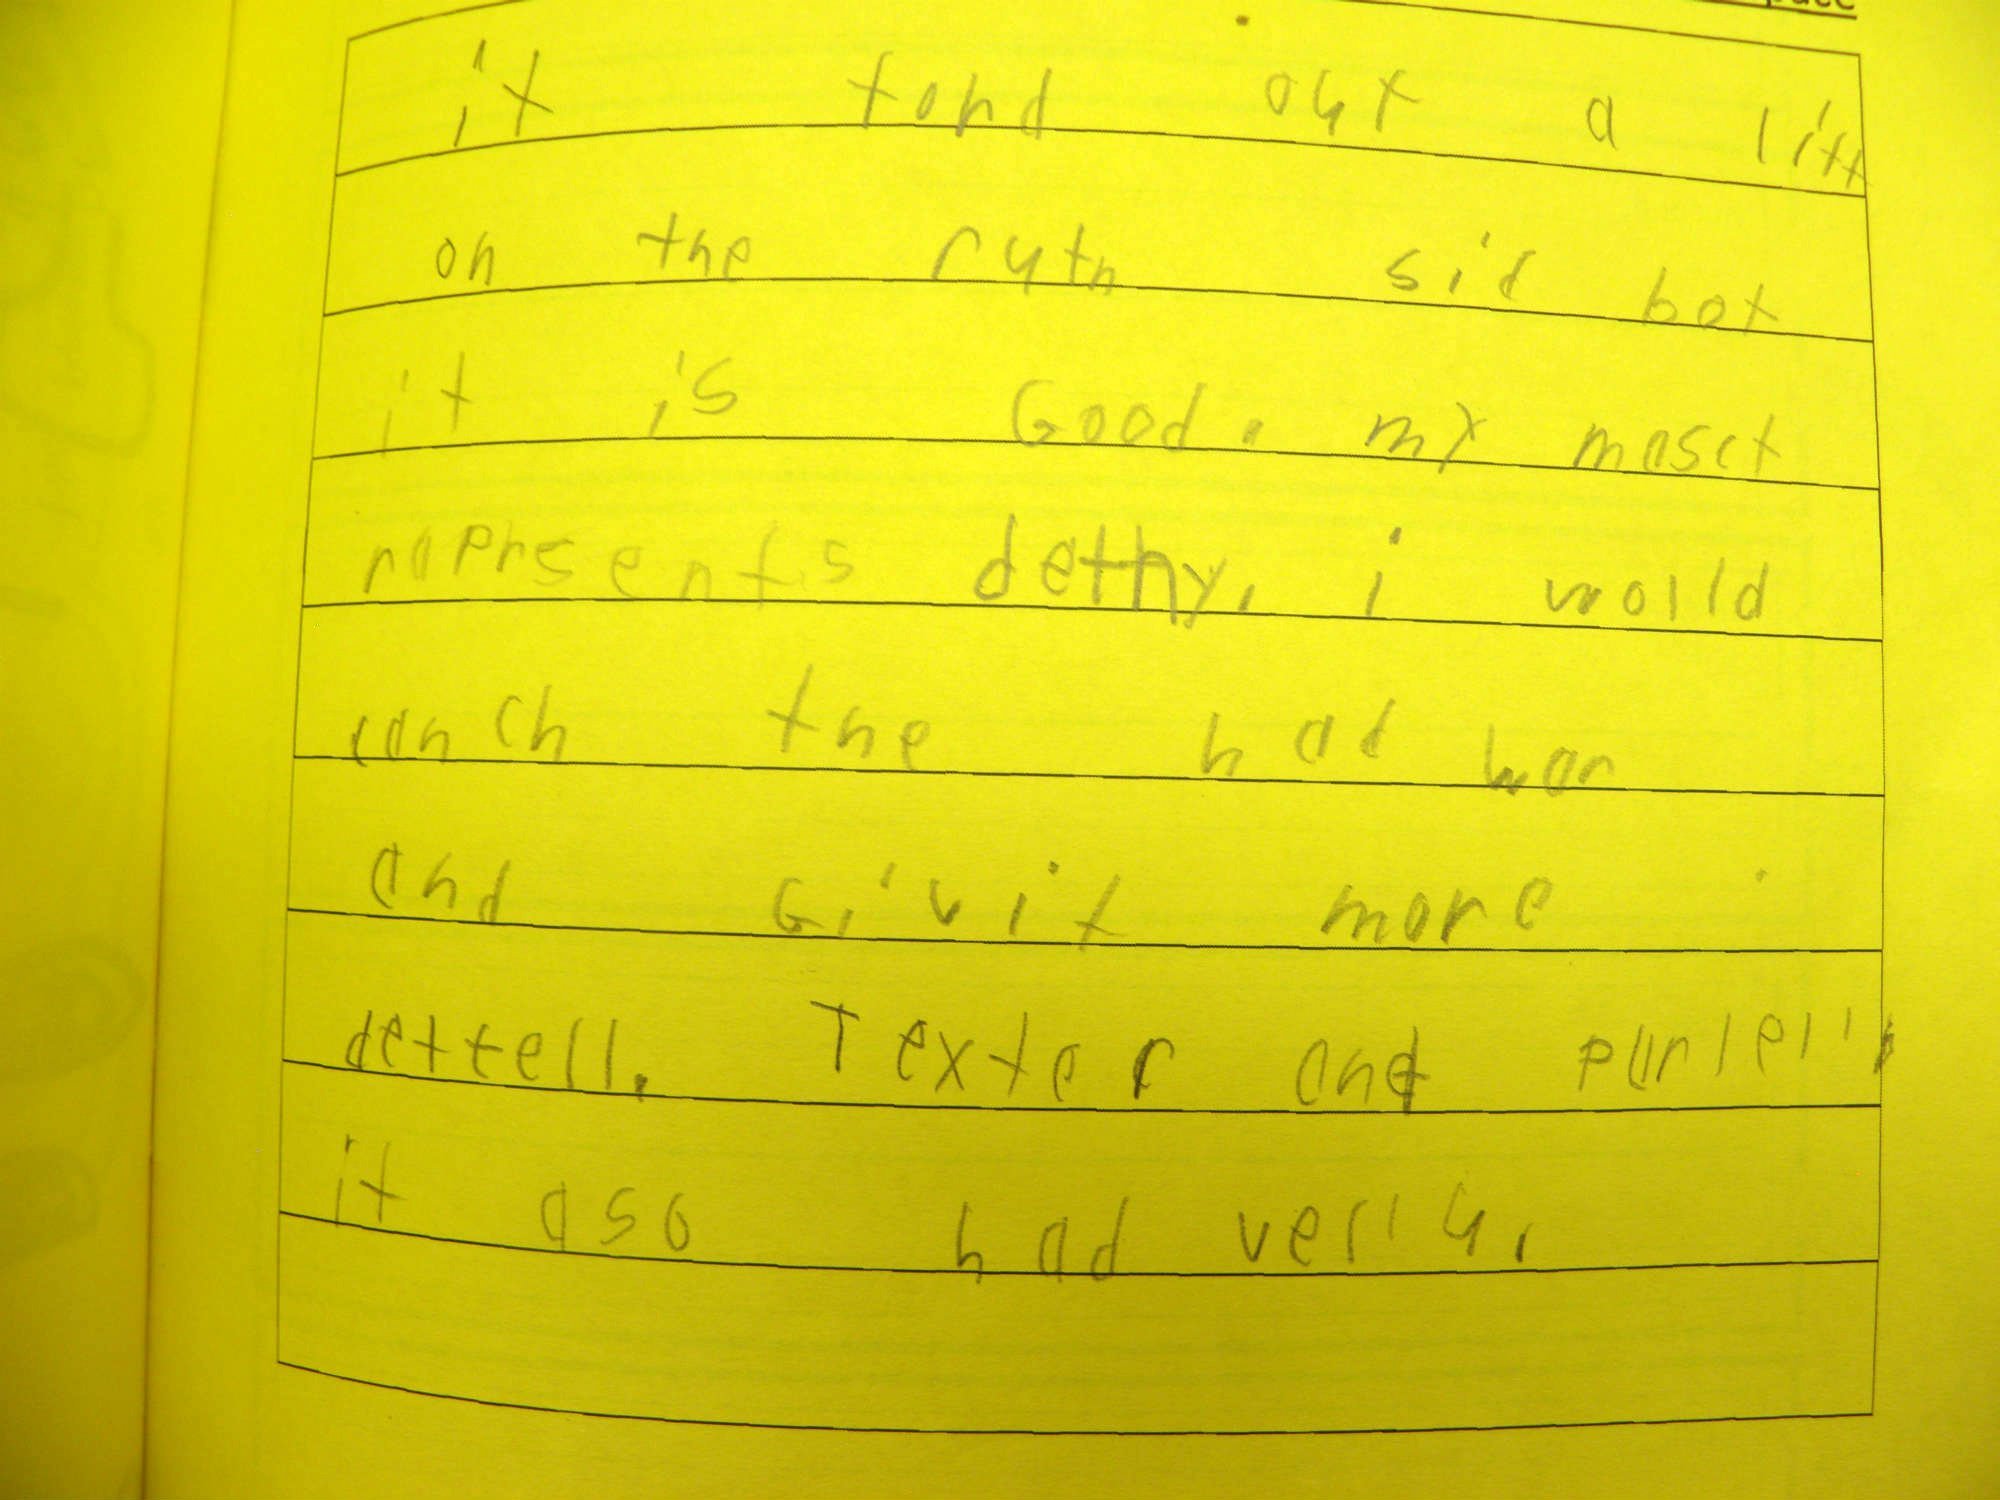 it tond out a litt
on the rytn sid bot
it is Good. my masct
raprsents dethy. i wolld
canch the had war
and Givit more
dettell. Texter and parlell
it aso had veriy.